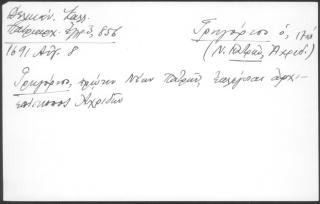 Δελικάν. Καλλ.
Πατριαρχ. Ἔγγρ. 856
1691 Αὐγ. 8
Γρηγόριος ὁ,
(Ν. Πατρῶν, Ἀχριδ.)
Γρηγόριος, πρώην Νέων Πατρῶν, ἐκλέγεται ἀρχι-
επίσκοπος Ἀχριδῶν